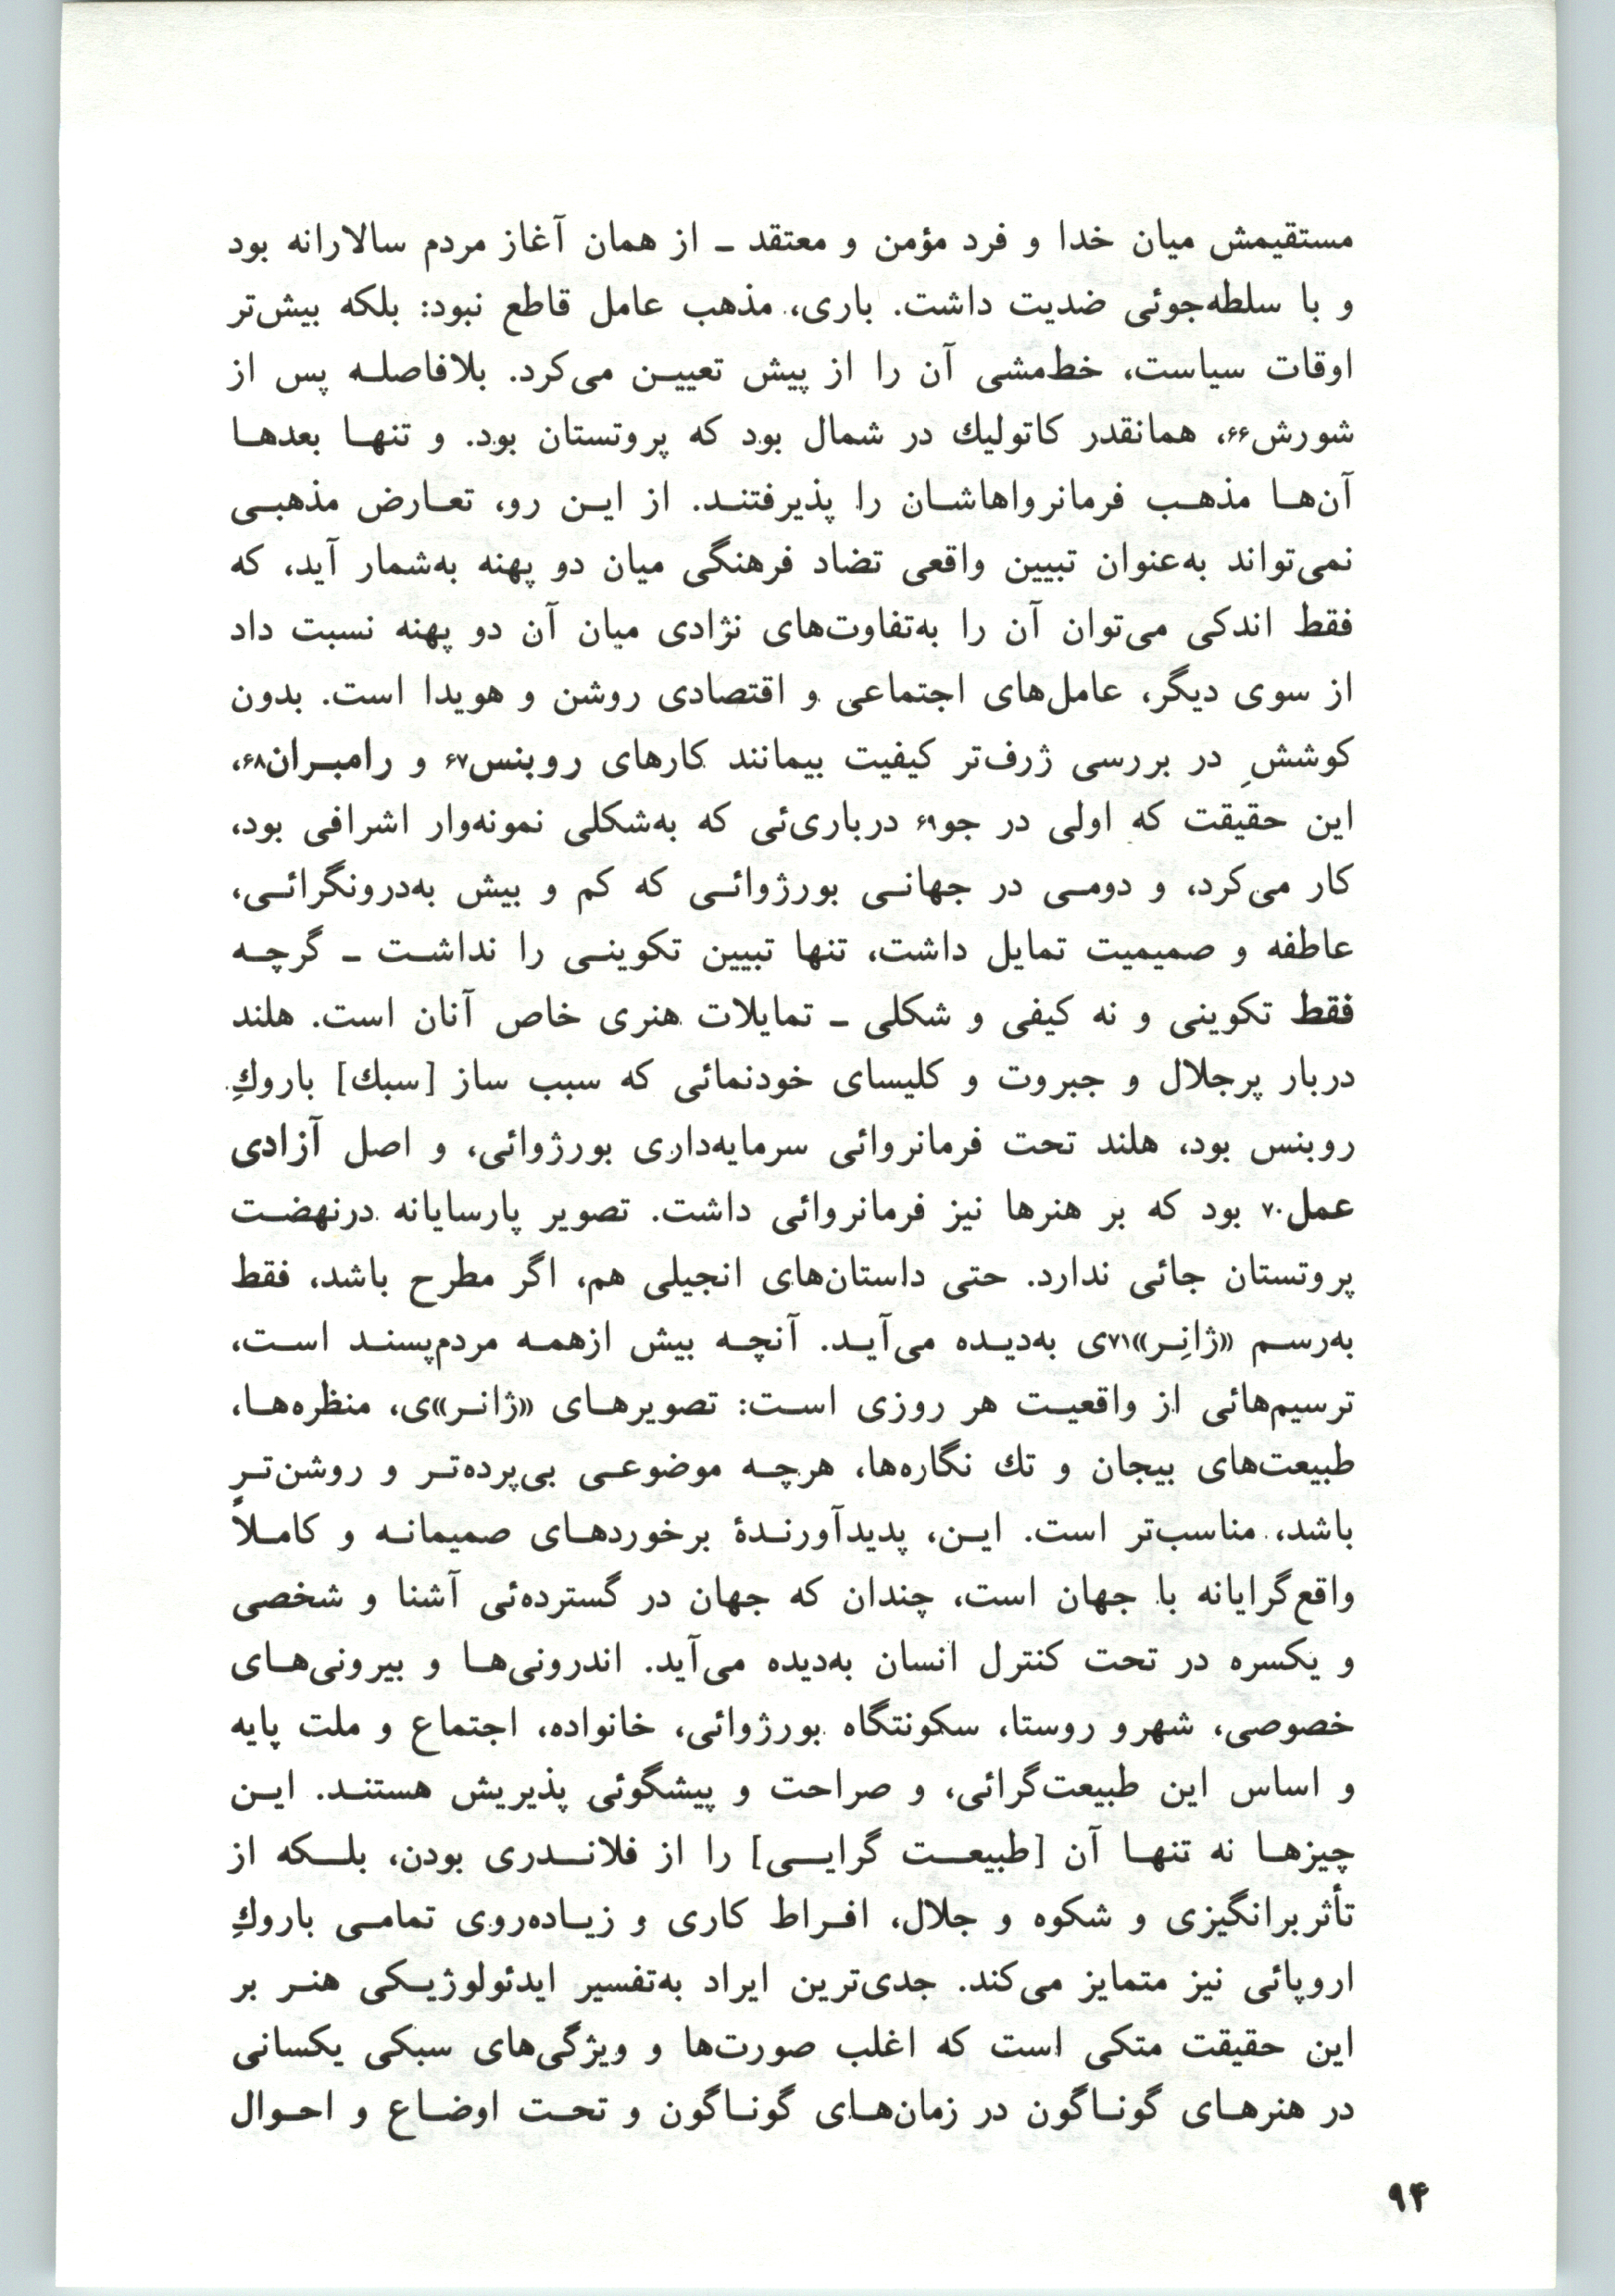 مستقیمش میان خدا و فرد مؤمن و معتقد ـ از همان آغاز مردم سالارانه بود
و با سلطه‌جوئی ضدیت داشت. باری، مذهب عامل قاطع نبود: بلکه بیش‌تر
اوقات سیاست، خط‌مشی آن را از پیش تعییـن می‌کرد. بلافاصلـه پس از
شورش۶۶، همانقدر کاتولیك در شمال بود که پروتستان بود. و تنهـا بعدهـا
آن‌هـا مذهـب فرمانرواهاشـان را پذیرفتنـد. از ایـن رو، تعـارض مذهبـی
نمی‌تواند به‌عنوان تبیین واقعی تضاد فرهنگی میان دو پهنه به‌شمار آید، که
فقط اندکی می‌توان آن را به‌تفاوت‌های نژادی میان آن دو پهنه نسبت داد
از سوی دیگر، عامل‌های اجتماعی و اقتصادی روشن و هویدا است. بدون
کوششِ در بررسی ژرف‌تر کیفیت بیمانند کارهای روبنس۶۷ و رامبـران۶۸،
این حقیقت که اولی در جو۶۹ درباری‌ئی که به‌شکلی نمونه‌وار اشرافی بود،
کار می‌کرد، و دومـی در جهانـی بورژوائـی که کم و بیش به‌درونگرائـی،
عاطفه و صمیمیت تمایل داشت، تنها تبیین تکوینـی را نداشـت ـ گرچـه
فقط تکوینی و نه کیفی و شکلی ـ تمایلات هنری خاص آنان است. هلند
دربار پرجلال و جبروت و کلیسای خودنمائی که سبب ساز [سبك] باروكِ
روبنس بود، هلند تحت فرمانروائی سرمایه‌داری بورژوائی، و اصل آزادی
عمل۷۰ بود که بر هنرها نیز فرمانروائی داشت. تصویر پارسایانه درنهضـت
پروتستان جائی ندارد. حتی داستان‌های انجیلی هم، اگر مطرح باشد، فقط
به‌رسـم «ژانِـر»۷۱ی به‌دیـده می‌آیـد. آنچـه بیش ازهمـه مردم‌پسنـد اسـت،
ترسیم‌هائی از واقعیـت هر روزی اسـت: تصویرهـای «ژانـر»ی، منظره‌هـا،
طبیعت‌های بیجان و تك نگاره‌ها، هرچـه موضوعـی بی‌پرده‌تـر و روشن‌تـر
باشد، مناسب‌تر است. ایـن، پدیدآورنـدۀ برخوردهـای صمیمانـه و کامـلاً
واقع‌گرایانه با جهان است، چندان که جهان در گسترده‌ئی آشنا و شخصی
و یکسره در تحت کنترل انسان به‌دیده می‌آید. اندرونی‌هـا و بیرونی‌هـای
خصوصی، شهرو روستا، سکونتگاه بورژوائی، خانواده، اجتماع و ملت پایه
و اساس این طبیعت‌گرائی، و صراحت و پیشگوئی پذیریش هستنـد. ایـن
چیزهـا نه تنهـا آن [طبیعـت گرایـی] را از فلانـدری بودن، بلـکه از
تأثربرانگیزی و شکوه و جلال، افـراط کاری و زیـاده‌روی تمامـی باروكِ
اروپائی نیز متمایز می‌کند. جدی‌ترین ایراد به‌تفسیر ایدئولوژیـکی هنـر بر
این حقیقت متکی است که اغلب صورت‌ها و ویژگی‌های سبکی یکسانی
در هنرهـای گونـاگون در زمان‌هـای گونـاگون و تحـت اوضـاع و احـوال
۹۴